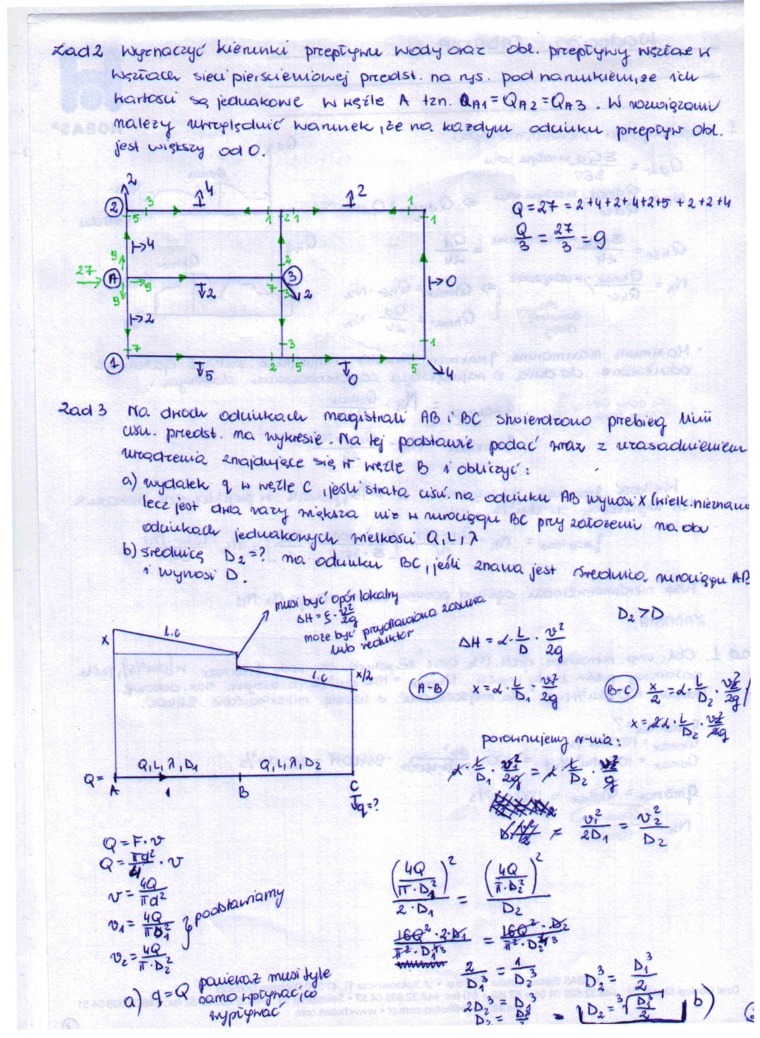 Zad 2 Wyznaczyć kierunki przepływu wody oraz obl. przepływy węzłowe w
węzłach sieci pierścieniowej przedst. na rys. pod warunkiem, że ich
wartości są jednakowe w węźle A tzn. QA1 = QA2 = QA3. W rozwiązaniu
należy uwzględnić warunek, że na każdym odcinku przepływ obl.
jest większy od 0.
2
4
2
2 3
5 1 2 1 1
1
Q = 27 = 2+4+2+4+2+5+2+2+4
Q/3 = 27/3 = 9
4
9
2
27 A 9
7 3
9
2
2
0
2
7
3
1
1
2 5
5
5
0
4
Zad 3 Na dwóch odcinkach magistrali AB i BC stwierdzono przebieg linii
ciśn. przedst. na wykresie. Na tej podstawie podać wraz z uzasadnieniem
urządzenia znajdujące się w węźle B i obliczyć:
a) wydatek q w węźle C, jeśli strata ciśń. na odcinku AB wynosi x (wielk. nieznana
lecz jest dwa razy większa niż w rurociągu BC przy założeniu na obu
odcinkach jednakowych wielkości Q, L, λ
b) średnicę D2 = ? na odcinku BC, jeśli znana jest średnica rurociągu AB
i wynosi D.
musi być opór lokalny
ΔH = ξ · v²/2g
może być przydławiona zasuwa
lub reduktor
D2 > D
x
l.c
l.c
x/2
ΔH = λ · L/D · v²/2g
A-B x = λ · L/D1 · v1²/2g
B-C x/2 = λ · L/D2 · v2²/2g /
x = 2λ · L/D2 · v2²/2g
porównujemy r-nia:
λ · L/D1 · v1²/2g = λ · L/D2 · v2²/g
Q, L, λ, D1
Q, L, λ, D2
Q =
A 1 B C
q = ?
v1²/2D1 = v2²/D2
Q = F · v
Q = πd²/4 · v
v = 4Q/πd²
v1 = 4Q/πD1²
v2 = 4Q/π·D2²
podstawiamy
(4Q/π·D1²)²/2·D1 = (4Q/π·D2²)²/D2
2/D1³ = 1/D2³
2D2³ = D1³
D2³ = D1³/2
D2 = ³√D1³/2 b)
a) q = Q ponieważ musi tyle
samo wpłynąć, co
wypłynąć